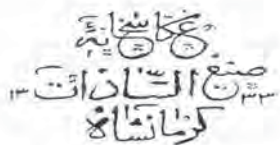 عکاسخانهٔ
۳۳ صنیع السادات ۱۳
کرمانشاه